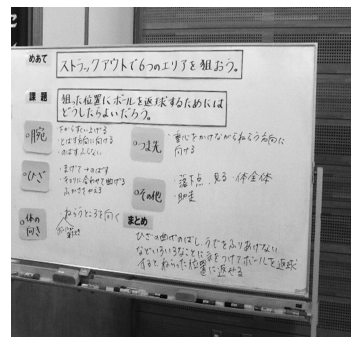 めあて
ストラックアウトで6つのエリアを狙おう。
課題
狙った位置にボールを返球するためには
どうしたらよいだろう。
腕
とばす方向に向ける
ひざ
・まげて→のばす
体の
向き
ねらうところを向く
つま先
・重心をかけながらねらう方向に
向ける
その他
・落下点・見る・体全体
・助走
まとめ
ひざの曲げのばし、うでをふりあげない
などいろいろなことに気をつけてボールを返球
するとねらった位置に返せる